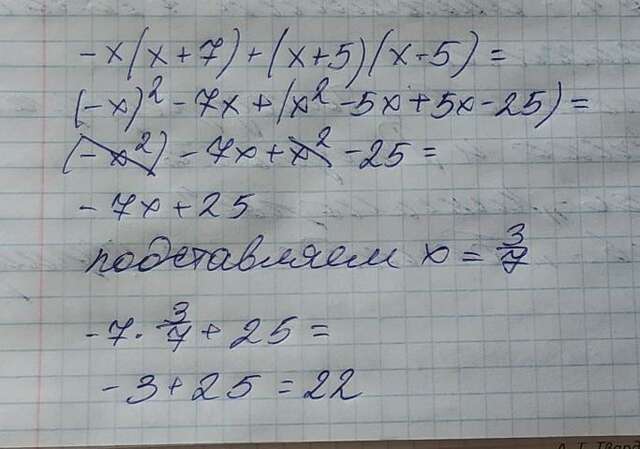 -x(x+7)+(x+5)(x-5)=
(-x)²-7x+(x²-5x+5x-25)=
(-x²)-7x+x²-25=
-7x+25
подставляем x=3/7
-7·3/7+25=
-3+25=22
А. Г. Твард